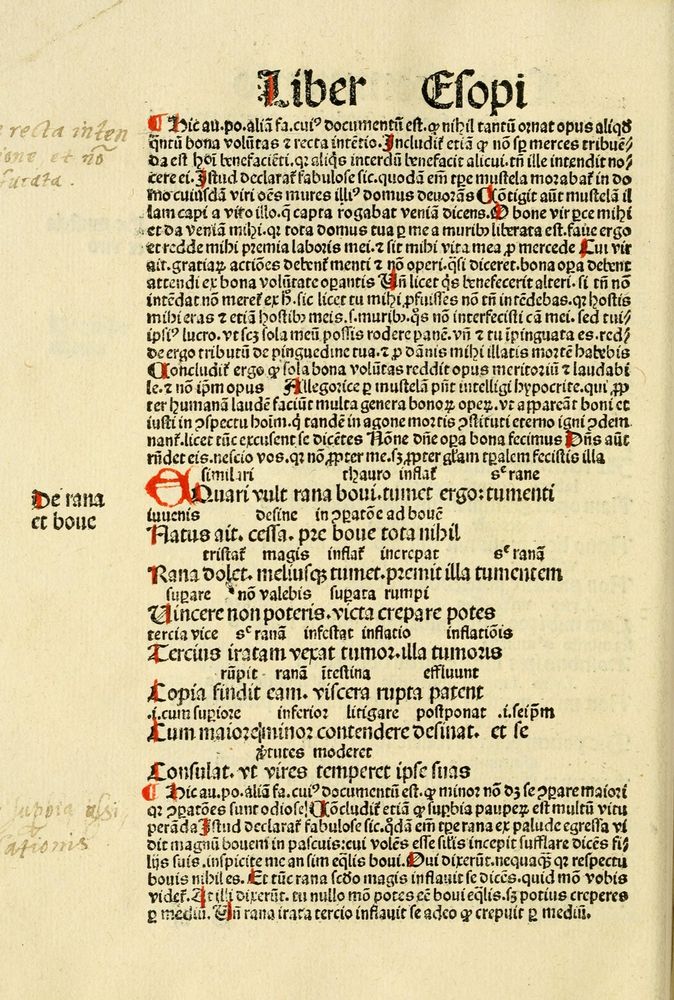 Liber Esopi
¶ Hic au. po. aliã fa. cuiꝰ documentũ est. ꝙ nihil tantũ ornat opus aliqđ
qntũ bona volũtas ⁊ recta intẽtio. Includit᷑ etiã ꝙ nõ sp̱ merces tribuẽ⸗
da est hoĩ benefaciẽti. qꝛ aliq̇s interdũ benefacit alicui. tñ ille intendit no⸗
cere ei. Istud declarat᷑ fabulose sic. quodã em̃ tp̱e mustela morabat᷑ in do
mo cuiusdã viri oẽs mures illiꝰ domus deuorãs Cõtigit aũt mustelã il
lam capi a viro illo. q̃ capta rogabat veniã dicens. O bone vir p̱ce mihi
et da veniã mihi. qꝛ tota domus tua p̱ me a muribꝰ liberata est. faue ergo
et redde mihi premia laboris mei. ⁊ sit mihi vita mea ꝓ mercede Cui vir
ait. gratiaꝝ actiões debent᷑ menti ⁊ nõ operi. q̃si diceret. bona oꝑa debent
attendi ex bona volũtate oꝑantis Uñ licet q̇s benefecerit alteri. si tñ nõ
intẽdat nõ meret᷑ ex ħ. sic licet tu mihi ꝓfuisses nõ tñ intẽdebas. qꝛ hostis
mihi eras ⁊ etiã hostibꝰ meis .s. muribꝰ. q̇s nõ interfecisti cã mei. sed tui⸗
ipsiꝰ lucro. vt scꝫ sola meũ possis rodere panẽ. vñ ⁊ tu ĩpinguata es. red⸗
de ergo tributũ de pinguedine tua. ⁊ ꝓ dãnis mihi illatis mortẽ habebis
Cõcludit᷑ ergo ꝙ sola bona volũtas reddit opus meritoriũ ⁊ laudabi
le. ⁊ nõ ip̃m opus Allegorice ꝑ mustelam p̃nt intelligi hypocrite. qui ꝓp
ter humanã laudẽ faciũt multa genera bonoꝝ opeꝝ. vt appareãt boni et
iusti in ꝯspectu hoĩm. q̇ tandẽ in agone mortis ꝯstituti eterno igni ꝯdem
nant᷑. licet tũc excusent se dicẽtes Nõne dñe oꝑa bona fecimus Dñs aũt
rñdet eis. nescio vos. qꝛ nõ ꝓpter me. sꝫ ꝓpter gl̃am tꝑalem fecistis illa
similari thauro inflat᷑ sꝫ rane
EQuari vult rana boui. tumet ergo: tumenti
De rana
et boue
iuuenis desine in ꝯꝑatõe ad bouẽ
Natus ait. cessa. pre boue tota nihil
tristat᷑ magis inflat᷑ increpat sꝫ ranã
Rana dolet. meliusqꝫ tumet. premit illa tumentem
suꝑare nõ valebis suꝑata rumpi
Uincere non poteris. victa crepare potes
tercia vice sꝫ ranã infestat inflatio inflatiõis
Tercius iratam vexat tumor. illa tumoris
rũpit ranã ĩtestina effluunt
Copia findit eam. viscera rupta patent
.i. cum suꝑiore inferior litigare postponat .i. seip̃m
Cum maiore minor contendere desinat. et se
ꝟtutes moderet
Consulat. vt vires temperet ipse suas
¶ Hic au. po. aliã fa. cuiꝰ documentũ est. ꝙ minor nõ dꝫ se ꝯꝑare maiori
qꝛ ꝯꝑatões sunt odiose Cõcludit᷑ etiã ꝙ suꝑbia pauꝑeꝝ est multũ vitu
perãda Istud declarat᷑ fabulose sic. q̃dã em̃ tp̱e rana ex palude egressa vi
dit magnũ bouem in pascuis: cui volẽs esse sil̃is incepit sufflare dicẽs fi⸗
lijs suis. inspicite me an sim eq̃lis boui. Qui dixerũt. nequaqꝫ qꝛ respectu
bouis nihil es. Et tũc rana scđo magis inflauit se dicẽs. quid mõ vobis
videt᷑. At illi dixerũt. tu nullo mõ potes eẽ boui eq̃lis. sꝫ potius creperes
ꝑ mediũ. Uñ rana irata tercio inflauit se adeo ꝙ crepuit ꝑ mediũ.